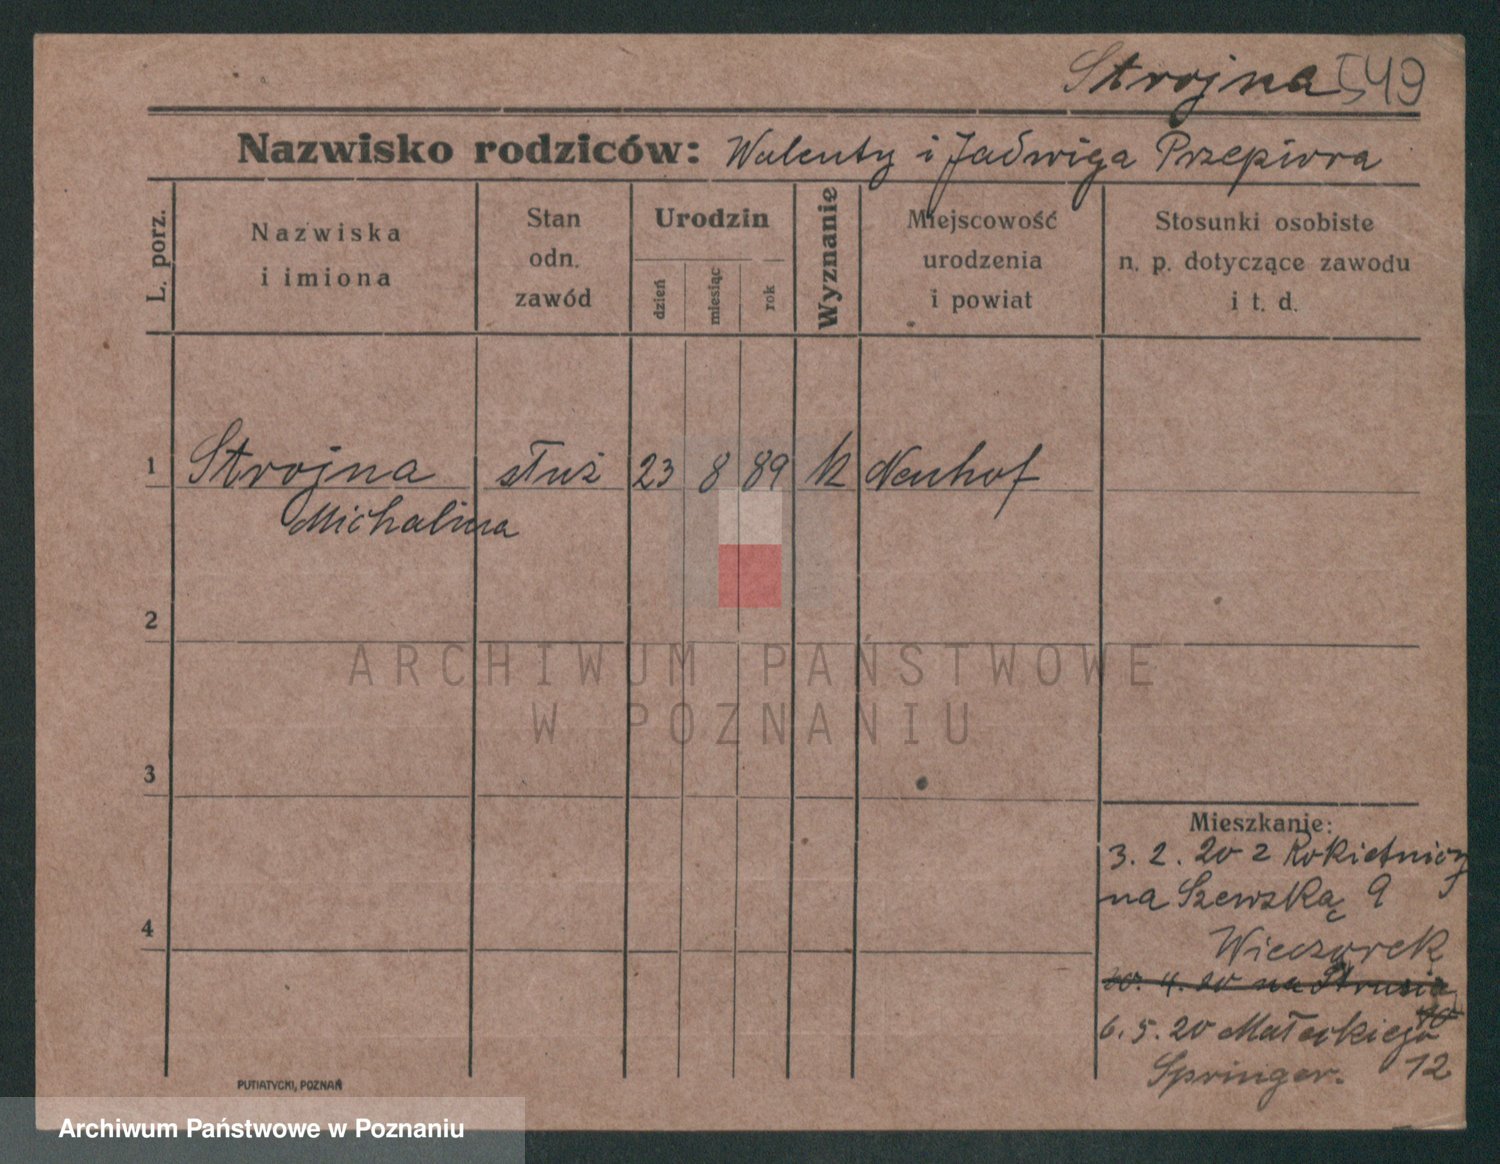 Strojna 549
Nazwisko rodziców: Walenty i Jadwiga Przepiora
L. porz.
Nazwiska
i imiona
Stan
odn.
zawód
Urodzin
dzień
miesiąc
rok
Wyznanie
Miejscowość
urodzenia
i powiat
Stosunki osobiste
n. p. dotyczące zawodu
i t. d.
1 Strojna służ 23 8 89 k Neuhof
Michalina
2
3
4
ARCHIWUM PAŃSTWOWE
W POZNANIU
Mieszkanie:
3. 2. 20 z Rokietnicy
na Szewską 9
Wieczorek
20. 4. 20 na Strusia
6. 5. 20 Małeckiego
Springer. 12
PUTIATYCKI, POZNAŃ
Archiwum Państwowe w Poznaniu